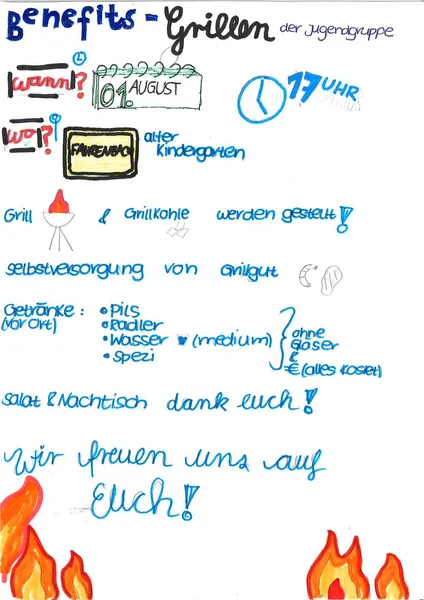 Benefits = Grillen der Jugendgruppe
wann? 01. AUGUST 17 UHR
wo? FAHRENBACH alter Kindergarten
Grill & Grillkohle werden gestellt!
selbstversorgung von Grillgut
Getränke: • Pils
(vor Ort) • Radler
• Wasser (medium)
• Spezi
ohne
Gläser
&
€ (alles kostet)
Salat & Nachtisch dank euch!
Wir freuen uns auf
Euch!